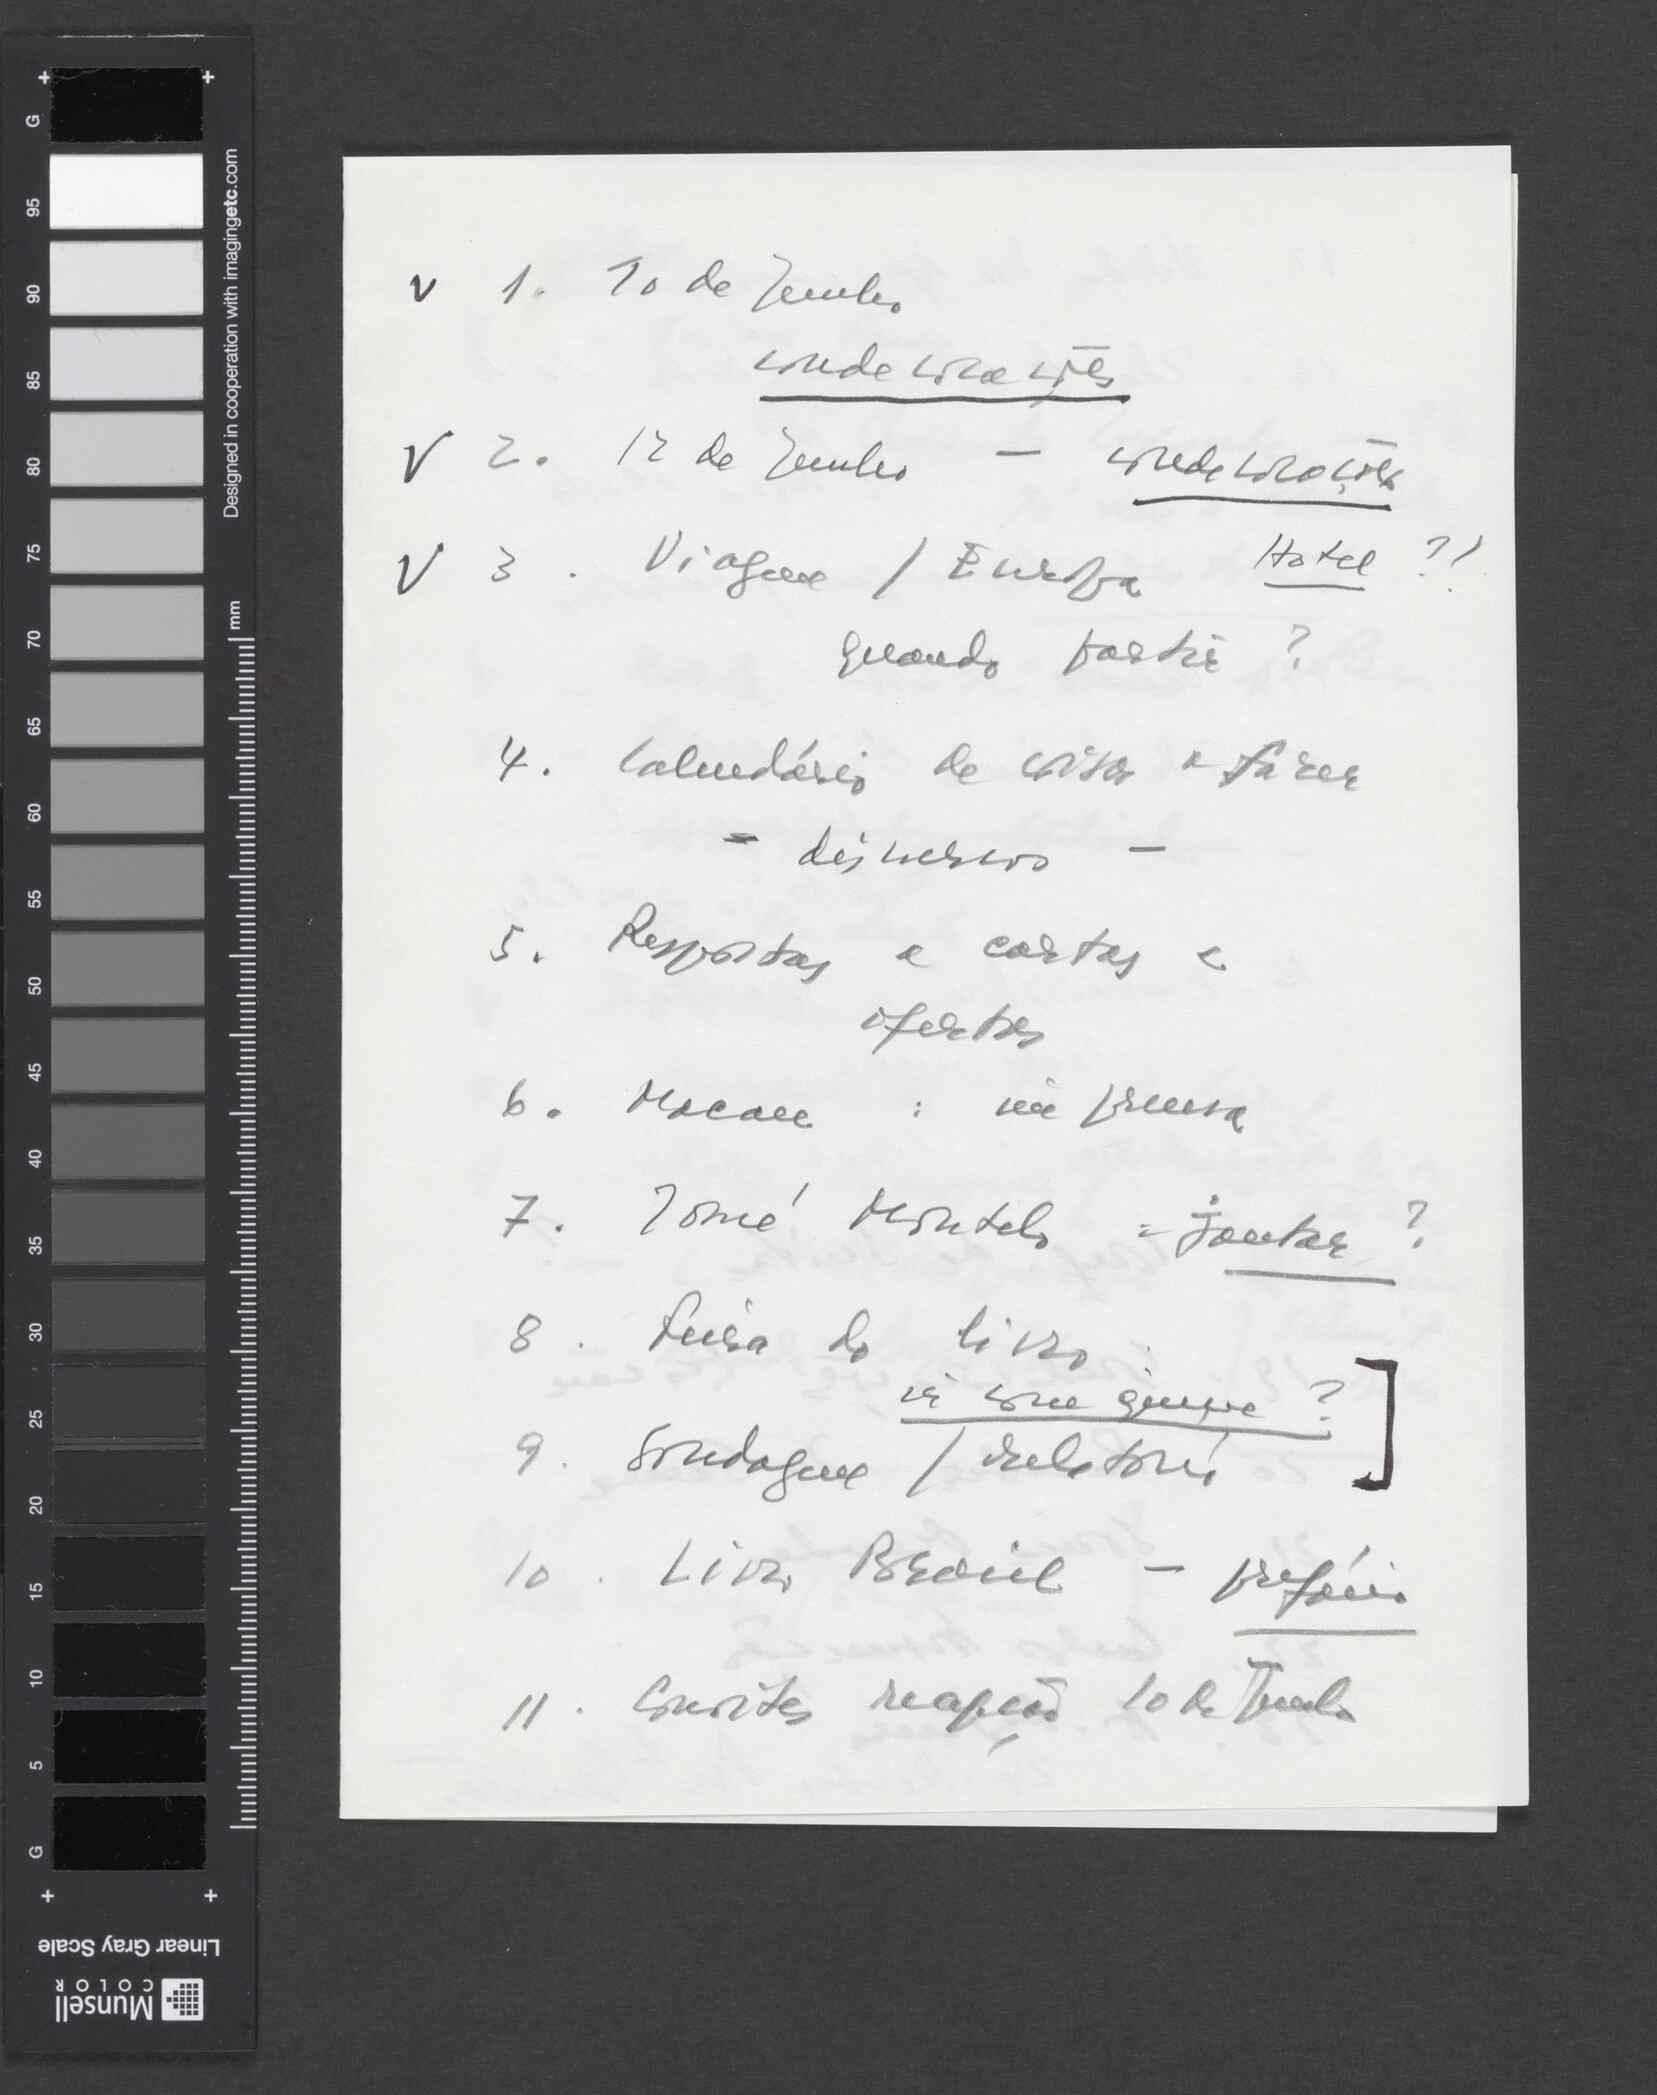 v 1. 10 de Junho
condecorações
v 2. 12 de Junho — condecorações
v 3. Viagem / Europa Hotel ?!
quando partir ?
4. Calendário de coisas a fazer
= discursos —
5. Respostas a cartas e
ofertas
6. Macau : imprensa
7. Josué Montelo = jantar ?
8. Feira do livro :
ir com quem ?
9. Sondagem / relatório
10. Livro Brasil — prefácio
11. Convites recepção 10 de Junho
G 95 90 85 80 75 70 65 60 55 50 45 40 35 30 25 20 15 10 5 G
Designed in cooperation with imagingetc.com
mm
Linear Gray Scale
Munsell
COLOR